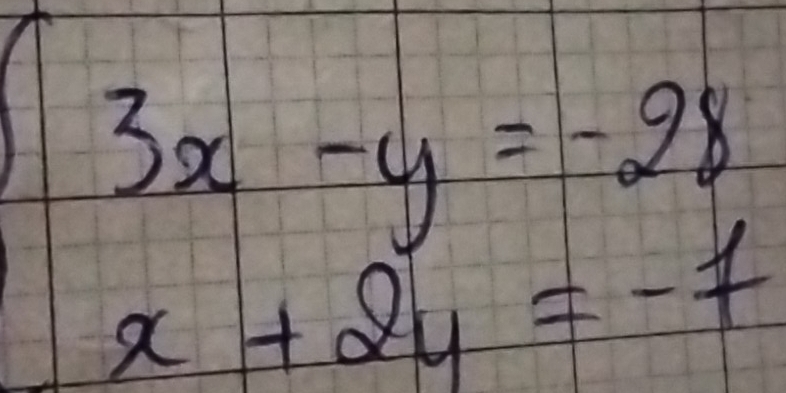 3x - y = -28
x + 2y = -7